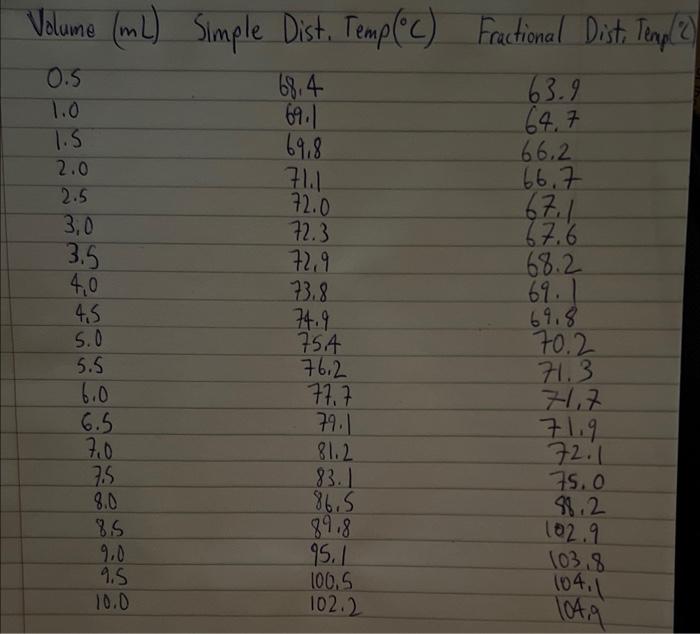 Volume (mL) Simple Dist. Temp(°C) Fractional Dist. Temp(°C)
0.5 68.4 63.9
1.0 69.1 64.7
1.5 69.8 66.2
2.0 71.1 66.7
2.5 72.0 67.1
3.0 72.3 67.6
3.5 72.9 68.2
4.0 73.8 69.1
4.5 74.9 69.8
5.0 75.4 70.2
5.5 76.2 71.3
6.0 77.7 71.7
6.5 79.1 71.9
7.0 81.2 72.1
7.5 83.1 75.0
8.0 86.5 88.2
8.5 89.8 102.9
9.0 95.1 103.8
9.5 100.5 104.1
10.0 102.2 104.9